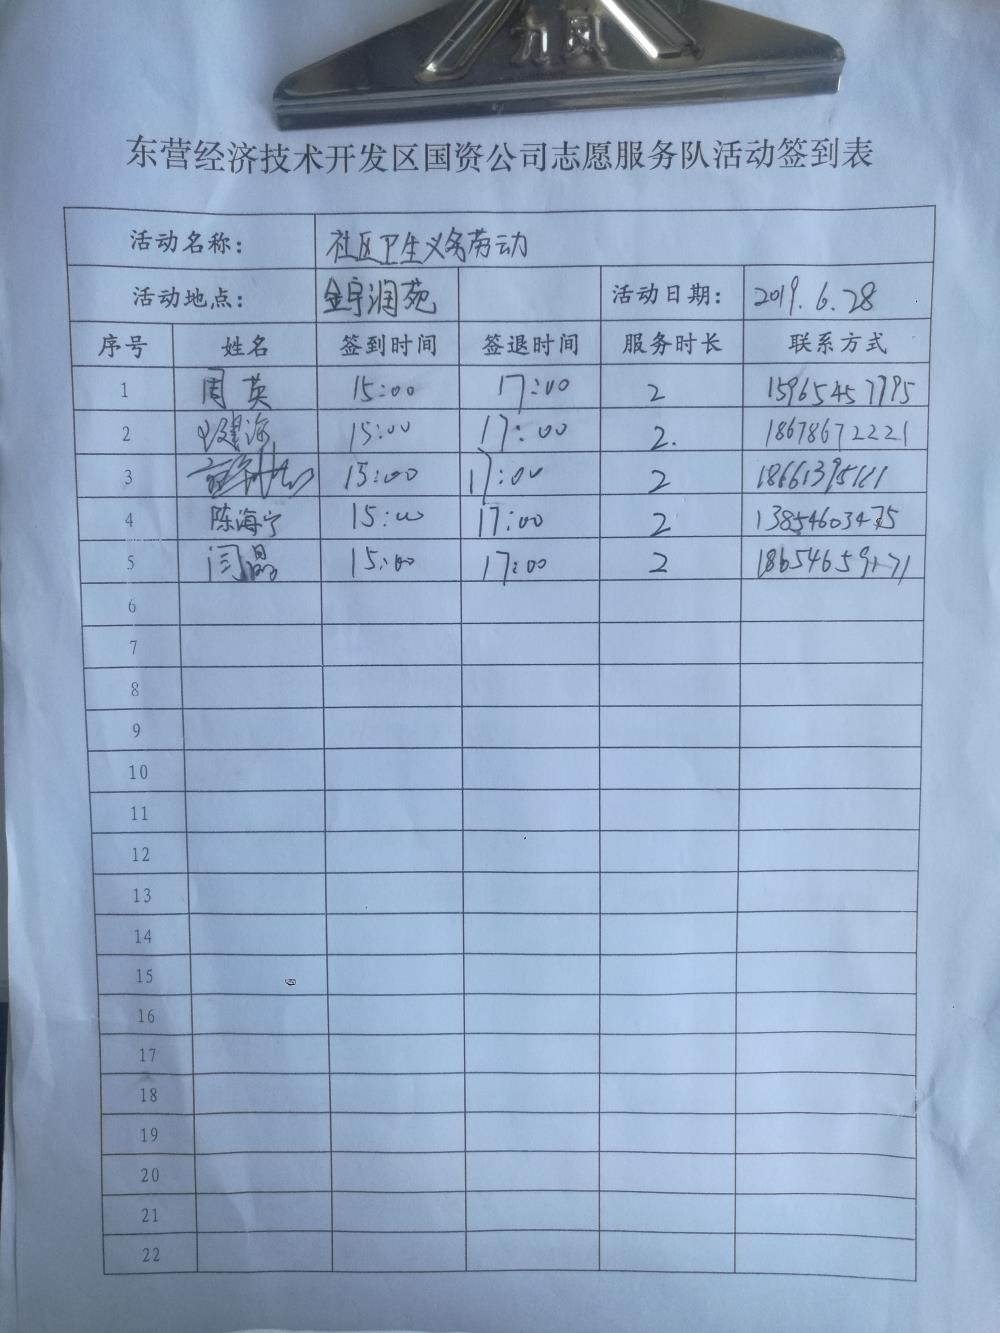 东营经济技术开发区国资公司志愿服务队活动签到表
活动名称： 社区卫生义务劳动
活动地点： 金宇润苑 活动日期： 2019.6.28
序号 姓名 签到时间 签退时间 服务时长 联系方式
1 周英 15:00 17:00 2 15965457795
2 15:00 17:00 2. 18678672221
3 15:00 17:00 2
4 陈海宁 15:00 17:00 2 13854603475
5 闫晶 15:00 17:00 2
6
7
8
9
10
11
12
13
14
15
16
17
18
19
20
21
22